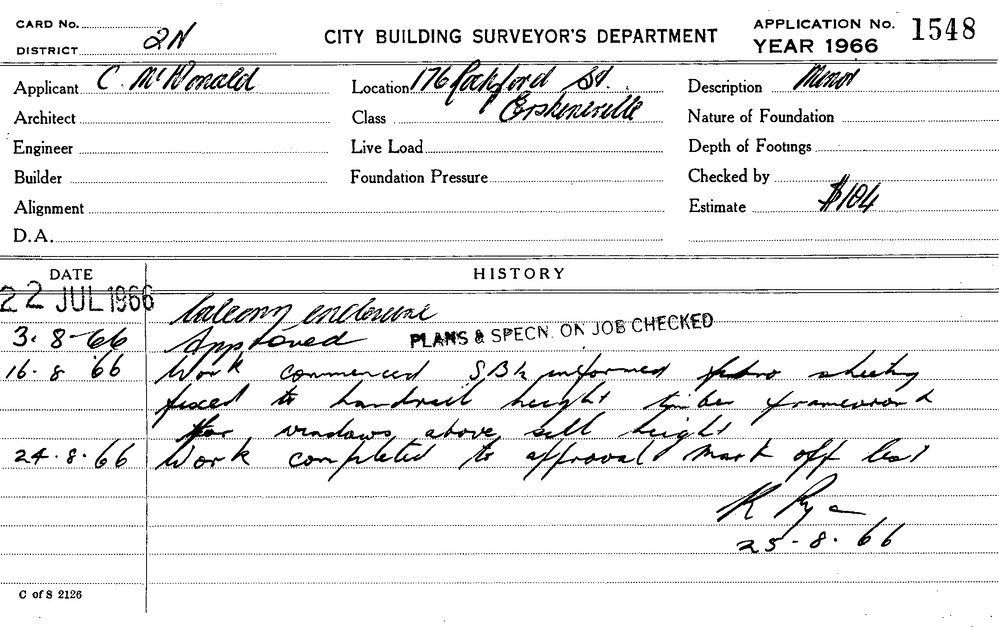 CARD No.
DISTRICT 2N
CITY BUILDING SURVEYOR'S DEPARTMENT
APPLICATION No. 1548
YEAR 1966
Applicant C. McDonald
Location 176 Rochford St.
Description Minor
Architect
Class Erskineville
Nature of Foundation
Engineer
Live Load
Depth of Footings
Builder
Foundation Pressure
Checked by
Alignment
Estimate $184
D.A.
DATE HISTORY
22 JUL 1966 balcony enclosure
3.8-66 Approved PLANS & SPECN. ON JOB CHECKED
16.8 66 Work commenced informed fibro sheeting
fixed to handrail height timber framework
for windows above sill height
24.8.66 Work completed to approval mark off list
K
25-8.66
C of S 2126